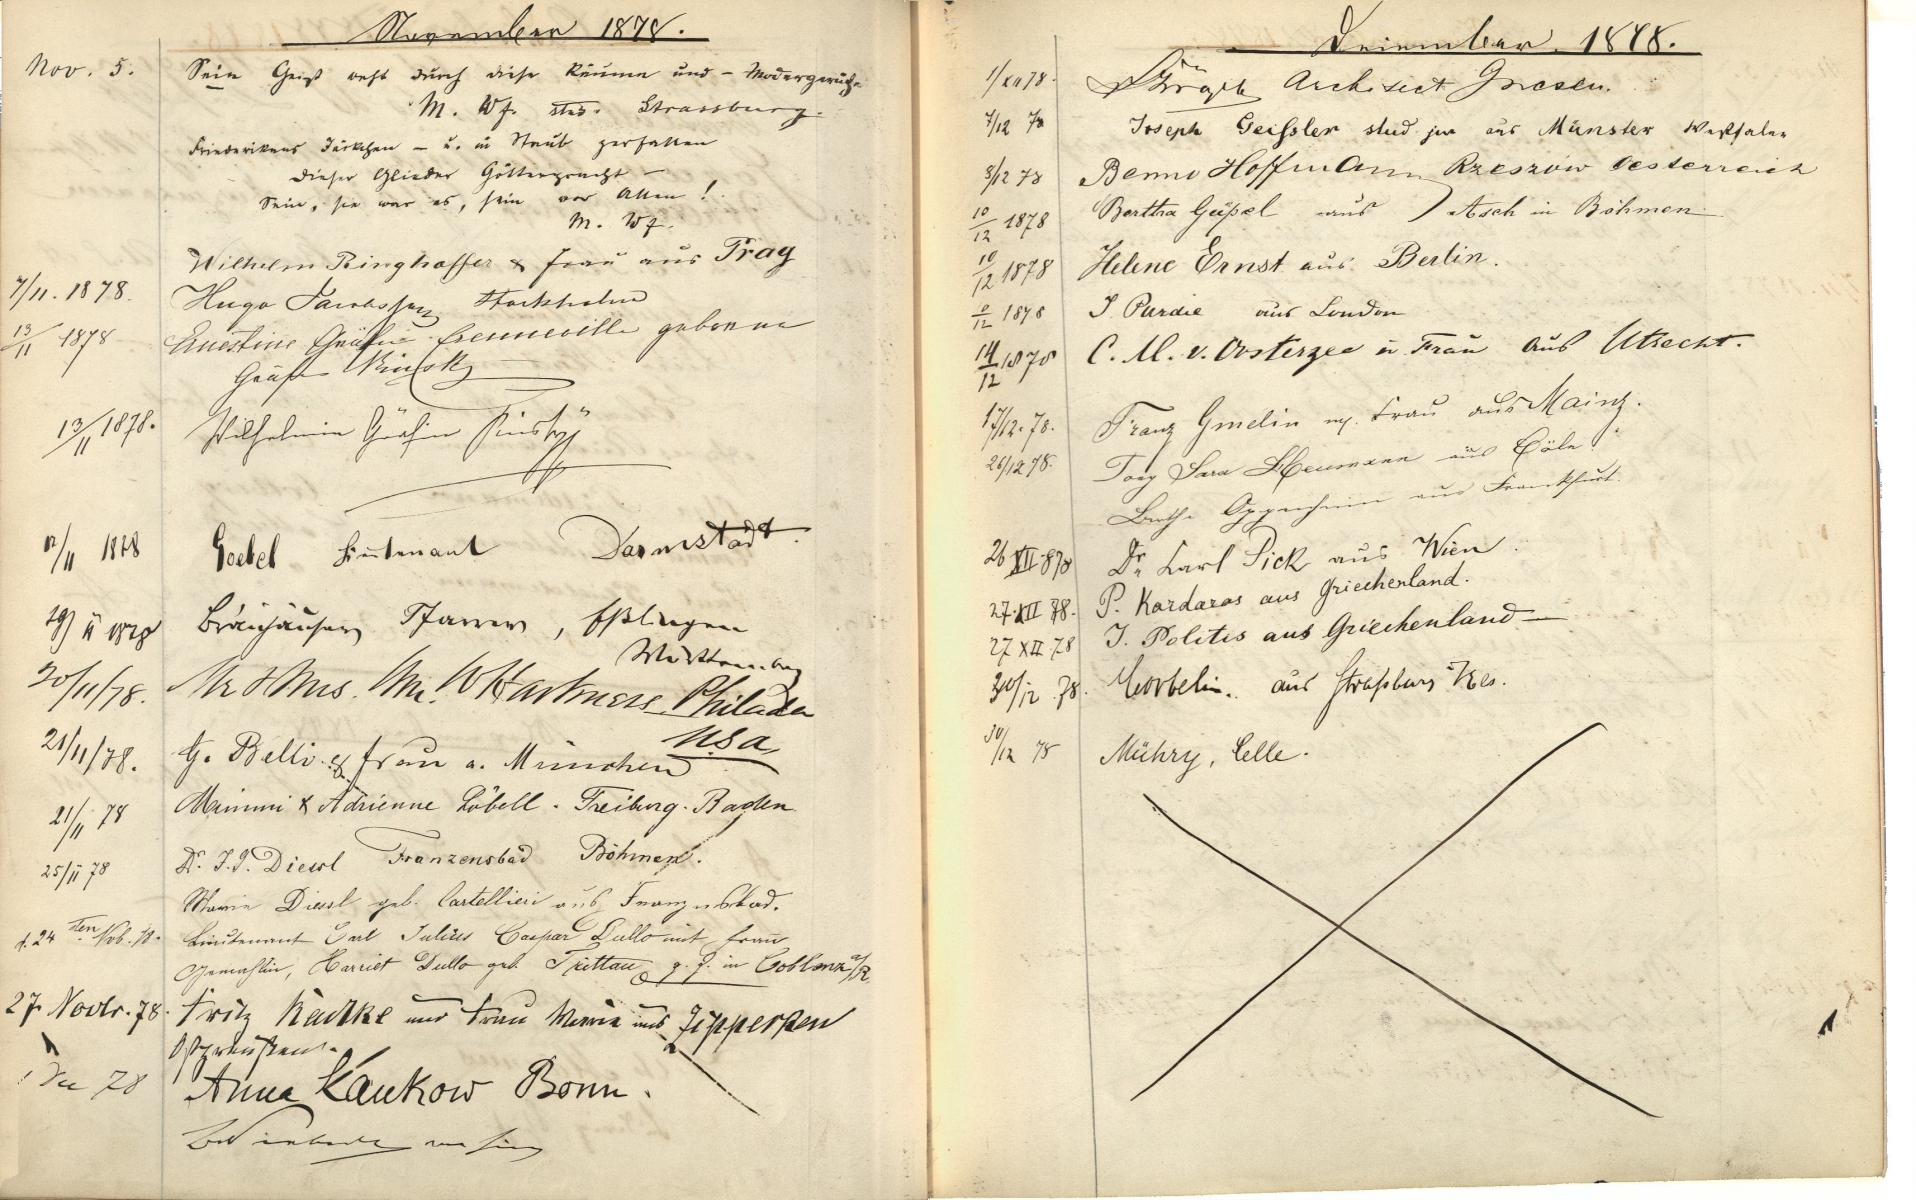 November 1878.
Nov. 5. Sein Geist weht durch diese Räume und – Modergeruch.
M. Wf. stud. Strassburg.
Friederikens Jäckchen – u. in Staub zerfallen
dieser Glieder Götterpracht –
Sein, sie war es, sein vor Allen!
M. Wf.
Wilhelm Ringhoffer & Frau aus Prag
7/11. 1878. Hugo Stockholm
13/11 1878 Ernestine Gräfin Crenneville geborene
Gräfin Kinsky
13/11 1878. Wilhelmine Gräfin Kinsky
/11 1878 Goebel Lieutenant Darmstadt.
19/II 1878 Pfarrer, Eßlingen
Württemberg
20/11/78. Mr & Mrs. Wm. W Philada
USA
21/11/78. G. Belli & Frau a. München
21/11 78 Mimmi & Adrienne Löbell. Freiburg. Baden
25/11 78 Dr. J. J. Diessl Franzensbad Böhmen.
Marie Diessl geb. Cartellieri aus Franzensbad.
d. 24ten Nob. 78. Lieutenant Carl Julius Caspar Dullo mit Frau
Gemahlin, Harriet Dullo geb. Trittau z. Z. in Coblenz a/R.
27 Novbr. 78. Fritz und Frau Marie aus
Ostpreußen.
Dec 78 Anna Bonn.
December. 1878.
1/XII 78. Architect Giesen.
7/12 78 Joseph Geißler stud. jur aus Münster Westfalen
8/12 78 Benno Hoffmann Rzeszów Oesterreich
10/12 1878 Bertha Geipel aus Asch in Böhmen
10/12 1878 Helene Ernst aus Berlin.
/12 1878 J. Purdie aus London
14/12 1878 C. M. v. Oosterzee u Frau aus Utrecht.
17/12. 78. Franz Gmelin m. Frau aus Mainz.
26/12 78. Sara aus Cöln
Oppenheim aus Frankfurt.
26 XII 878 Dr. Karl Pick aus Wien.
27. XII 78. P. Kardaras aus Griechenland.
27 XII 78 J. Politis aus Griechenland
30/12 78. Corbelin. aus Straßburg i/Els.
30/12 78 Mühry, Celle.